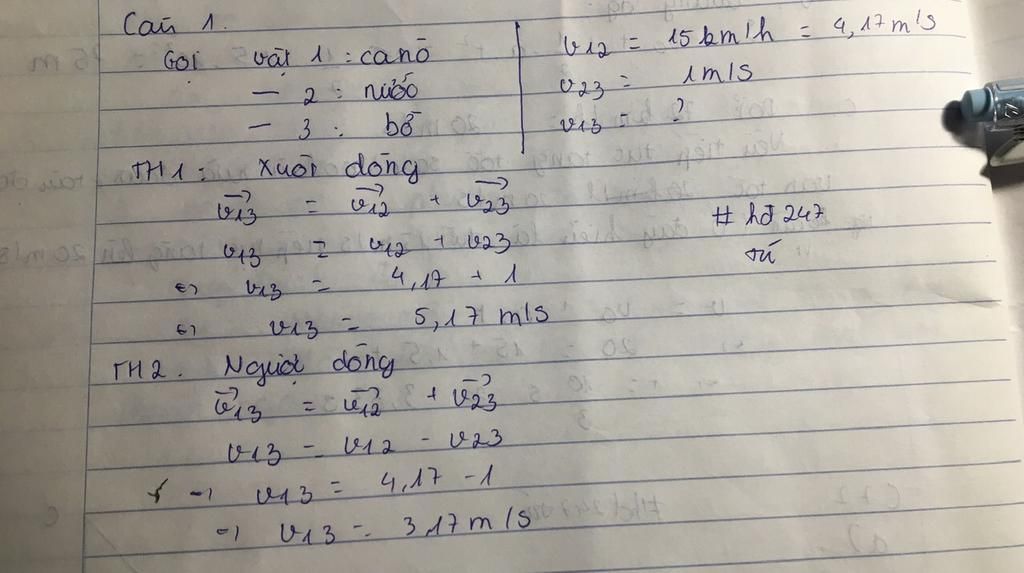 Câu 1.
Gọi vật 1 : canô
— 2 : nước
— 3 : bờ
v12 = 15km/h = 4,17m/s
v23 = 1m/s
v13 = ?
TH1 : Xuôi dòng
v13 = v12 + v23
v13 = v12 + v23
⇔ v13 = 4,17 + 1
⇔ v13 = 5,17 m/s
# hđ 247
TH2. Ngược dòng
v13 = v12 + v23
v13 = v12 - v23
⇒ v13 = 4,17 - 1
⇒ v13 = 3,17 m/s